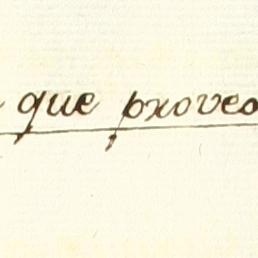 que proveo